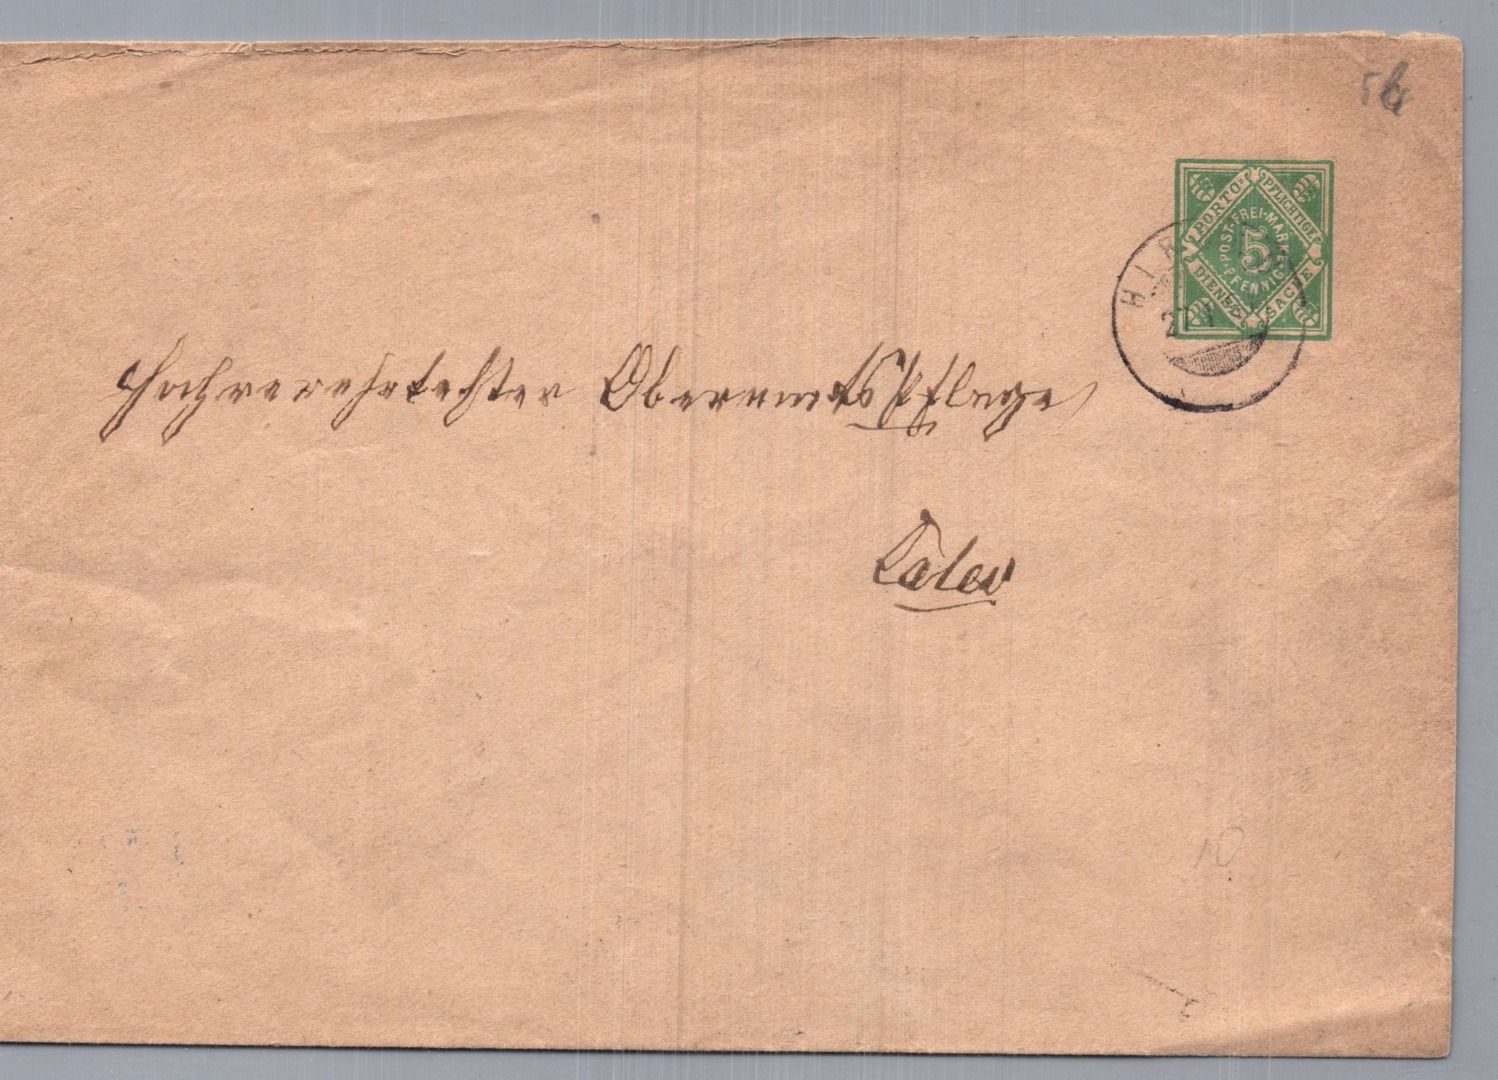 56
PORTO= PFLICHTIGE
POST-FREI-MARKE
5
PFENNIG
DIENST SACHE
HIR
27
Hochverehrlichster Oberamtspflege
Calw
10